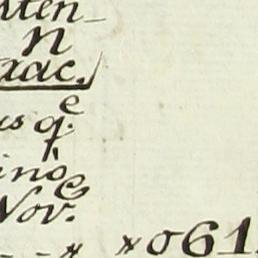 nten-
N
aac.
us q.e
inò
e
Nov.
061.